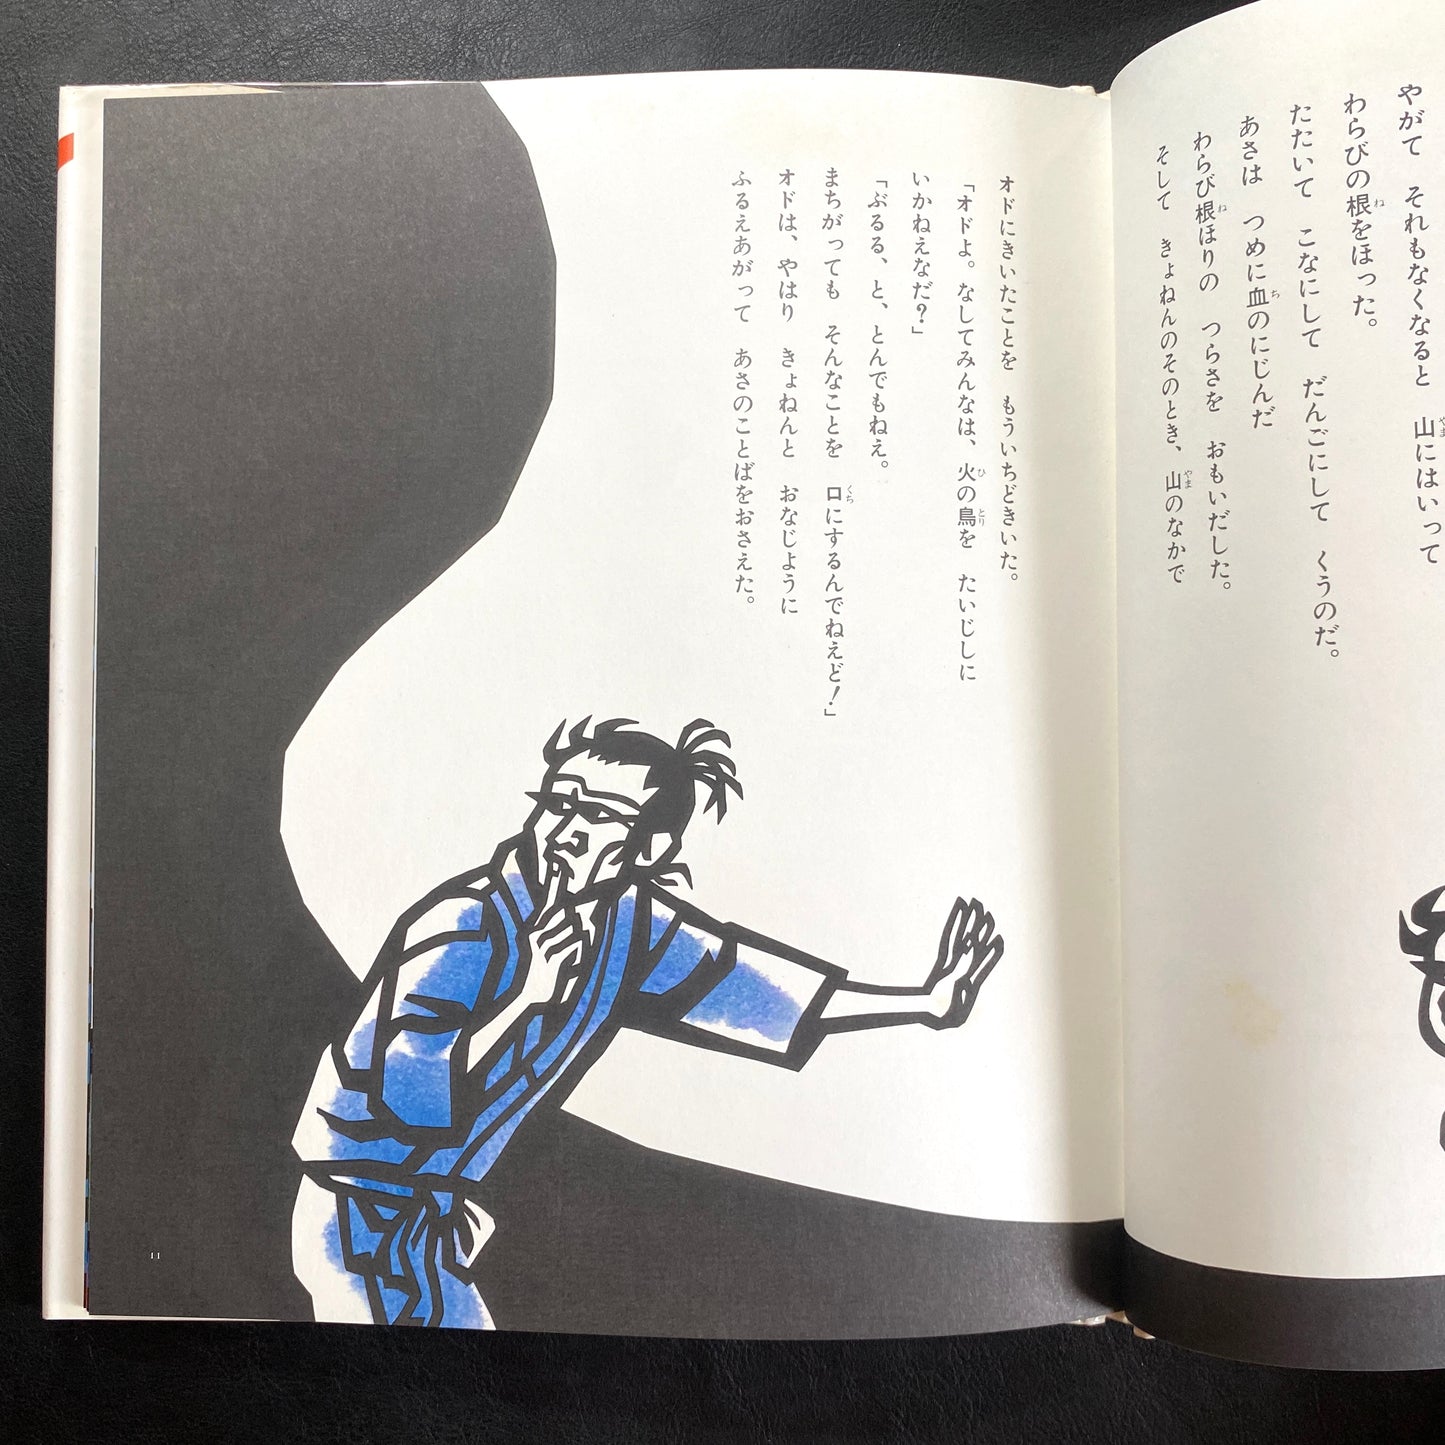 やがて それもなくなると 山にはいって
わらびの根をほった。
たたいて こなにして だんごにして くうのだ。
あさは つめに血のにじんだ
わらび根ほりの つらさを おもいだした。
そして きょねんのそのとき、山のなかで
オドにきいたことを もういちどきいた。
「オドよ。なしてみんなは、火の鳥を たいじしに
いかねえなだ?」
「ぶるる、と、とんでもねえ。
まちがっても そんなことを 口にするんでねえど!」
オドは、やはり きょねんと おなじように
ふるえあがって あさのことばをおさえた。
11